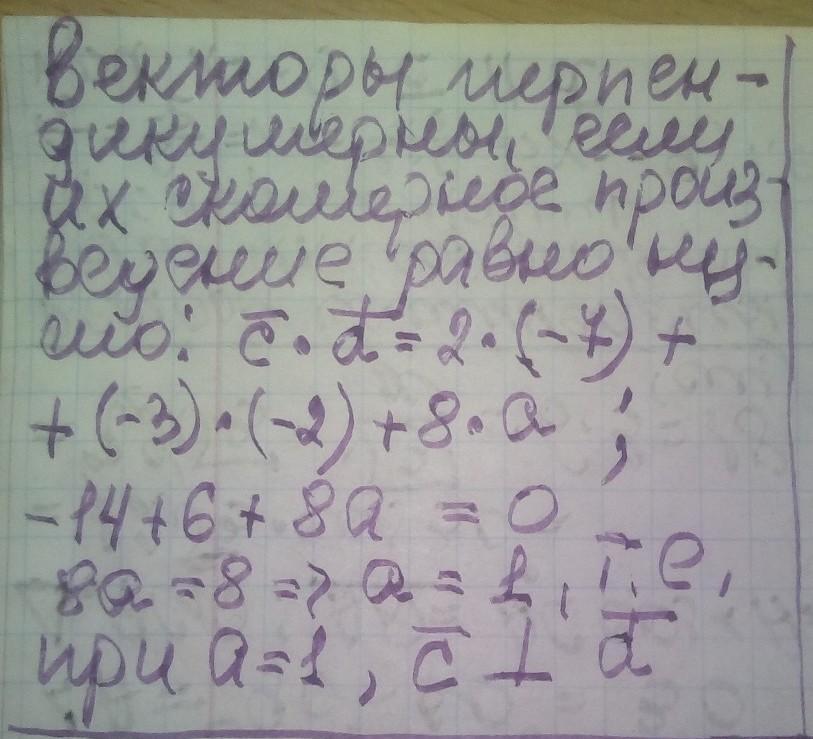 Векторы перпен-
дикулярны, если
их скалярное произ-
ведение равно ну-
лю: c̅ · d̅ = 2 · (-7) +
+ (-3) · (-2) + 8 · a ;
-14 + 6 + 8a = 0
8a = 8 => a = 1, т.е.
при a = 1, c̅ ⊥ d̅